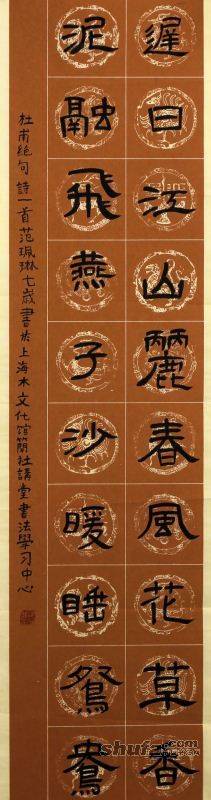 遲日江山麗春風花草香
泥融飛燕子沙暖睡鴛鴦
杜甫絕句詩一首范珮琳七歲書於上海木文化館簡社講堂書法學习中心
shufa
.com